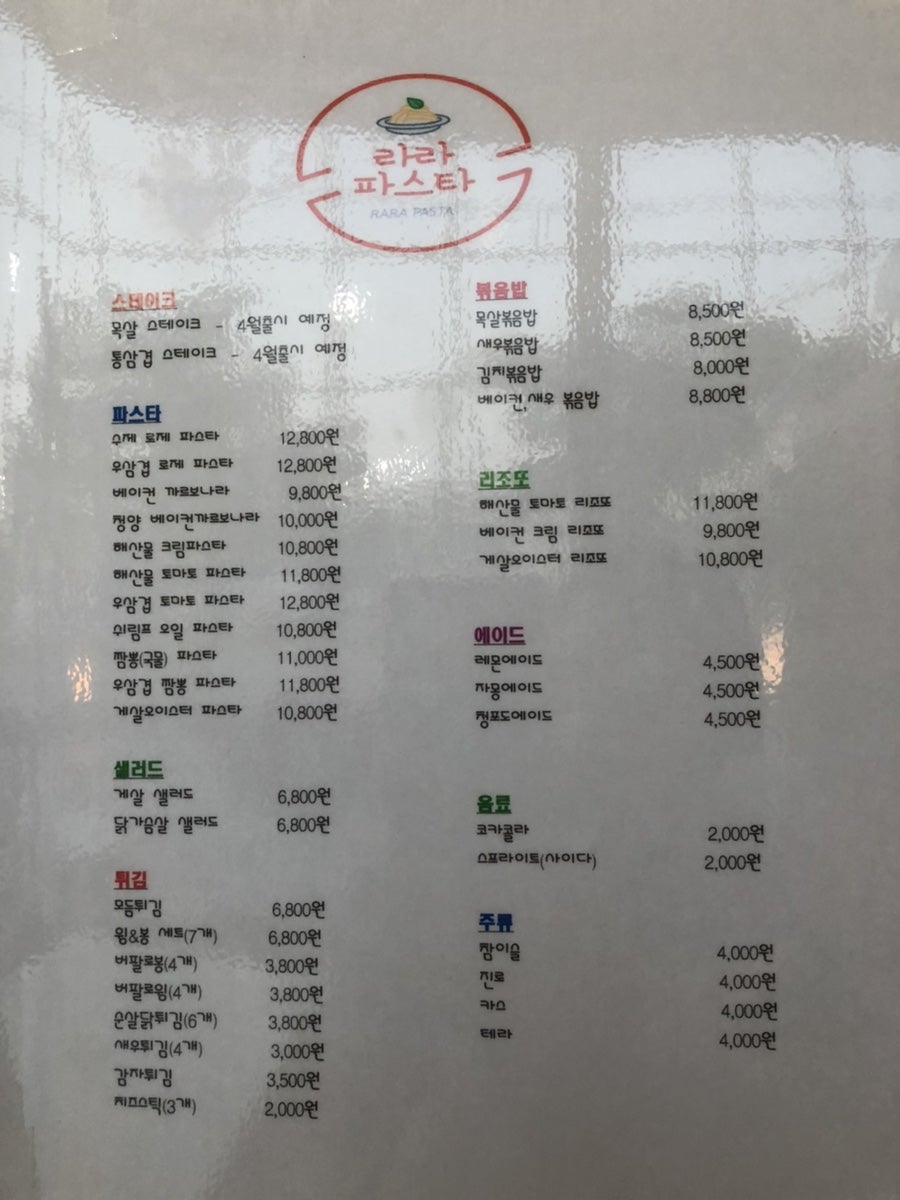 라라
파스타
RARA PASTA
스테이크
목살 스테이크 - 4월출시 예정
통삼겹 스테이크 - 4월출시 예정
파스타
수제 로제 파스타 12,800원
우삼겹 로제 파스타 12,800원
베이컨 까르보나라 9,800원
청양 베이컨까르보나라 10,000원
해산물 크림파스타 10,800원
해산물 토마토 파스타 11,800원
우삼겹 토마토 파스타 12,800원
쉬림프 오일 파스타 10,800원
짬뽕(국물) 파스타 11,000원
우삼겹 짬뽕 파스타 11,800원
게살오이스터 파스타 10,800원
샐러드
게살 샐러드 6,800원
닭가슴살 샐러드 6,800원
튀김
모듬튀김 6,800원
윙&봉 세트(7개) 6,800원
버팔로봉(4개) 3,800원
버팔로윙(4개) 3,800원
순살닭튀김(6개) 3,800원
새우튀김(4개) 3,000원
감자튀김 3,500원
치즈스틱(3개) 2,000원
볶음밥
목살볶음밥 8,500원
새우볶음밥 8,500원
김치볶음밥 8,000원
베이컨,새우 볶음밥 8,800원
리조또
해산물 토마토 리조또 11,800원
베이컨 크림 리조또 9,800원
게살오이스터 리조또 10,800원
에이드
레몬에이드 4,500원
자몽에이드 4,500원
청포도에이드 4,500원
음료
코카콜라 2,000원
스프라이트(사이다) 2,000원
주류
참이슬 4,000원
진로 4,000원
카스 4,000원
테라 4,000원